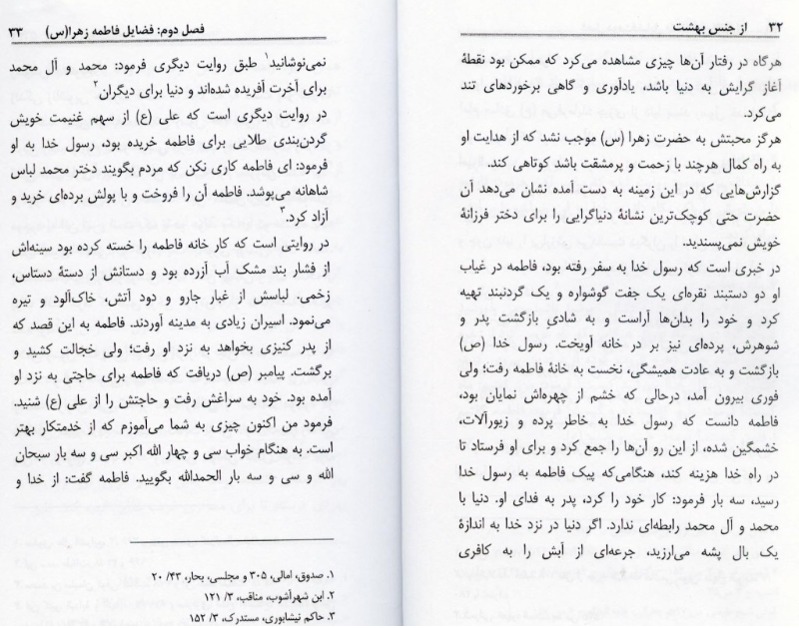 ۳۲ از جنس بهشت
هرگاه در رفتار آن‌ها چیزی مشاهده می‌کرد که ممکن بود نقطهٔ
آغاز گرایش به دنیا باشد، یادآوری و گاهی برخوردهای تند
می‌کرد.
هرگز محبتش به حضرت زهرا (س) موجب نشد که از هدایت او
به راه کمال هرچند با زحمت و پرمشقت باشد کوتاهی کند.
گزارش‌هایی که در این زمینه به دست آمده نشان می‌دهد آن
حضرت حتی کوچک‌ترین نشانهٔ دنیاگرایی را برای دختر فرزانهٔ
خویش نمی‌پسندید.
در خبری است که رسول خدا به سفر رفته بود، فاطمه در غیاب
او دو دستبند نقره‌ای یک جفت گوشواره و یک گردنبند تهیه
کرد و خود را بدان‌ها آراست و به شادیِ بازگشت پدر و
شوهرش، پرده‌ای نیز بر در خانه آویخت. رسول خدا (ص)
بازگشت و به عادت همیشگی، نخست به خانهٔ فاطمه رفت؛ ولی
فوری بیرون آمد، درحالی که خشم از چهره‌اش نمایان بود،
فاطمه دانست که رسول خدا به خاطر پرده و زیورآلات،
خشمگین شده، از این رو آن‌ها را جمع کرد و برای او فرستاد تا
در راه خدا هزینه کند، هنگامی‌که پیک فاطمه به رسول خدا
رسید، سه بار فرمود: کار خود را کرد، پدر به فدای او. دنیا با
محمد و آل محمد رابطه‌ای ندارد. اگر دنیا در نزد خدا به اندازهٔ
یک بال پشه می‌ارزید، جرعه‌ای از آبش را به کافری
فصل دوم: فضایل فاطمه زهرا(س) ۳۳
نمی‌نوشانید¹ طبق روایت دیگری فرمود: محمد و آل محمد
برای آخرت آفریده شده‌اند و دنیا برای دیگران²
در روایت دیگری است که علی (ع) از سهم غنیمت خویش
گردن‌بندی طلایی برای فاطمه خریده بود، رسول خدا به او
فرمود: ای فاطمه کاری نکن که مردم بگویند دختر محمد لباس
شاهانه می‌پوشد. فاطمه آن را فروخت و با پولش برده‌ای خرید و
آزاد کرد.³
در روایتی است که کار خانه فاطمه را خسته کرده بود سینه‌اش
از فشار بند مشک آب آزرده بود و دستانش از دستهٔ دستاس،
زخمی. لباسش از غبار جارو و دود آتش، خاک‌آلود و تیره
می‌نمود. اسیران زیادی به مدینه آوردند. فاطمه به این قصد که
از پدر کنیزی بخواهد به نزد او رفت؛ ولی خجالت کشید و
برگشت. پیامبر (ص) دریافت که فاطمه برای حاجتی به نزد او
آمده بود. خود به سراغش رفت و حاجتش را از علی (ع) شنید.
فرمود من اکنون چیزی به شما می‌آموزم که از خدمتکار بهتر
است. به هنگام خواب سی و چهار الله اکبر سی و سه بار سبحان
الله و سی و سه بار الحمدالله بگویید. فاطمه گفت: از خدا و
۱. صدوق، امالی، ۳۰۵ و مجلسی، بحار، ۴۳/ ۲۰
۲. ابن شهرآشوب، مناقب، ۳/ ۱۲۱
۳. حاکم نیشابوری، مستدرک، ۳/ ۱۵۲